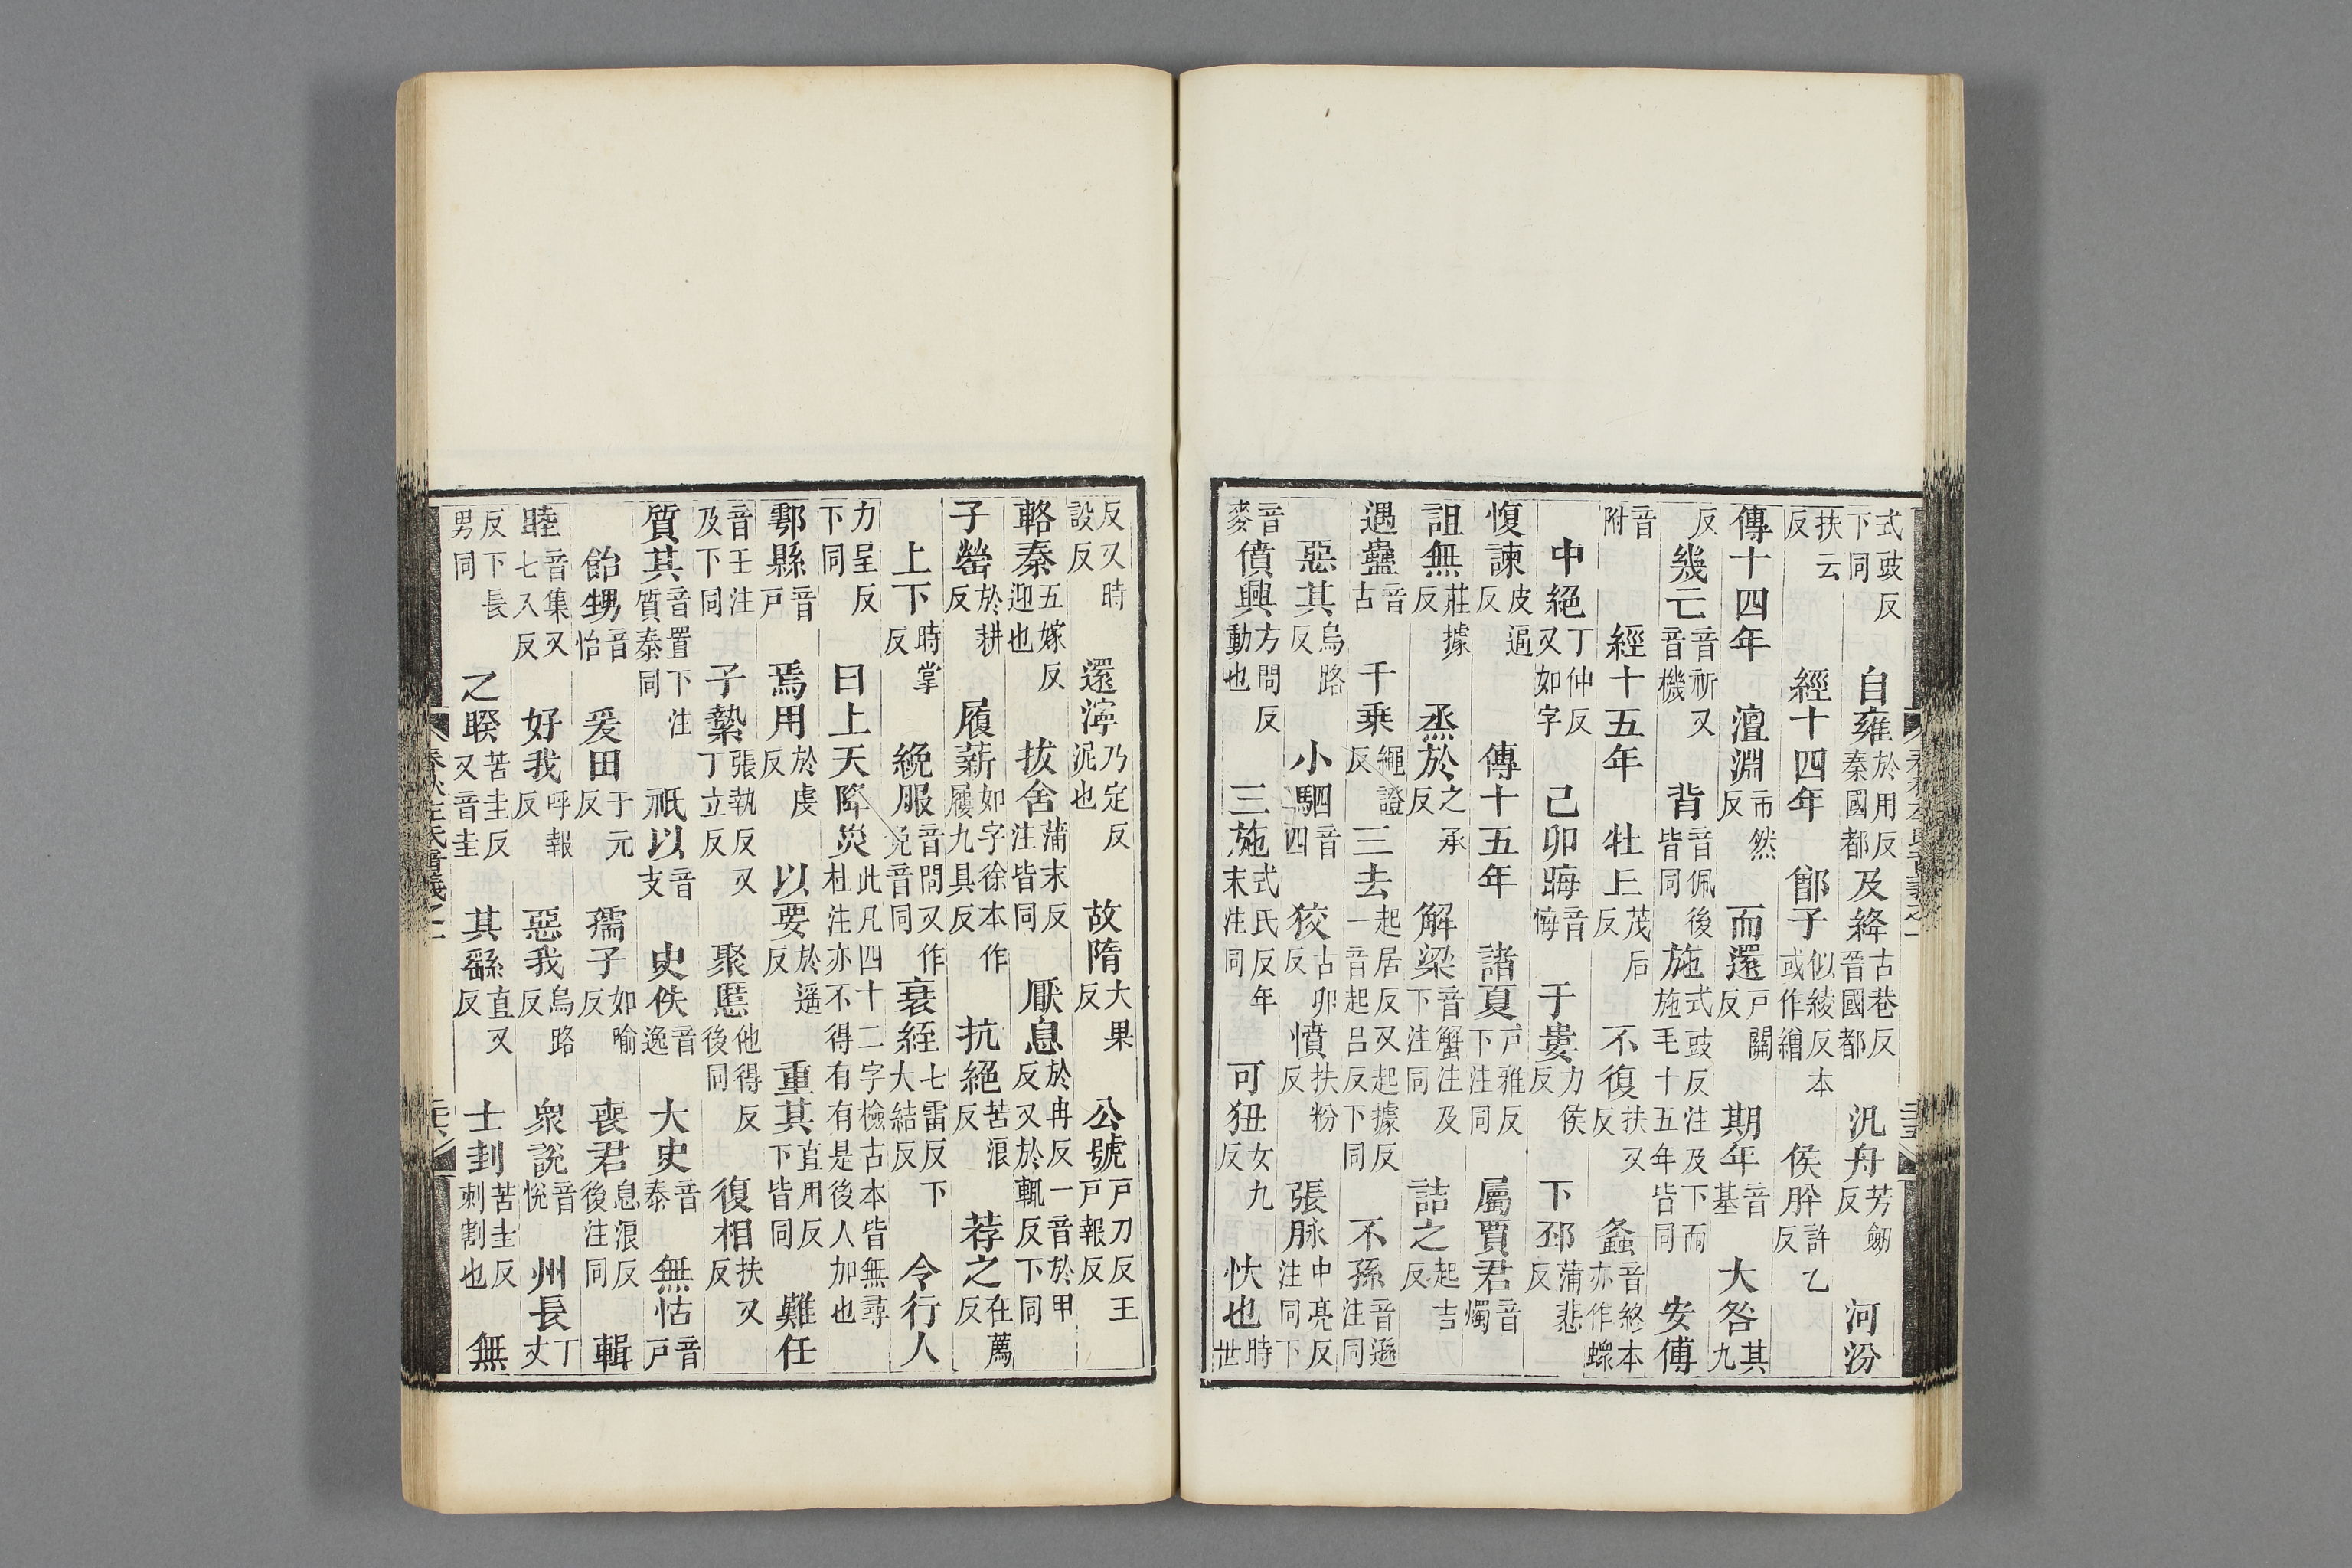 式豉反下同 自雍於用反秦國都 及絳古巷反晉國都 汎舟芳劒反 河汾
扶云反 經十四年 鄫子似綾反本或作繒 侯肸許乙反
傳十四年 澶淵市然反 而還戶關反 期年音基 大咎其九
反 幾亡音祈又音機 背音佩後皆同 施式豉反注及下而施毛十五年皆同 安傅
音附 經十五年 牡丘茂后反 不復扶又反 螽音終本亦作
中絕丁仲反又如字 己卯晦音悔 于婁力侯反 下邳蒲悲反
愎諫皮逼反 傳十五年 諸夏戶雅反下注同 屬賈君音燭
詛無莊據反 烝於之承反 解梁音蟹注及下注同 詰之起吉反
遇蠱音古 千乘繩證反 三去起居反又起據反一音起呂反下同 不孫音遜注同
惡其烏路反 小駟音四 狡古卯反 憤扶粉反 張脉中亮反注同下
音麥 僨興方問反動也 三施式氏反年末注同 可狃女九反 忕也時世
反又時設反 還濘乃定反泥也 故隋大果反 公號戶刀反王戶報反
輅秦五嫁反迎也 拔舍蒲末反注皆同 厭息於冉反一音於甲反又於輒反下同
子罃於耕反 履薪如字徐本作屨九具反 抗絕苦浪反 荐之在薦反
上下時掌反 絻服音問又作免音同 衰絰七雷反下大結反 令行人
力呈反下同 曰上天降災此凡四十二字檢古本皆無尋杜注亦不得有有是後人加也
鄠縣音戶 焉用於虔反 以要於遙反 重其直用反下皆同 難任
音壬注及下同 子縶張執反又丁立反 聚慝他得反後同 復相扶又反
質其音置下注質秦同 祇以音支 史佚音逸 大史音泰 無怙音戶
飴甥音怡 爰田于元反 孺子如喻反 喪君息浪反後注同 輯
睦音集又七入反 好我呼報反 惡我烏路反 衆說音悅 州長丁丈
反下長男同 之睽苦圭反又音圭 其繇直又反 士刲苦圭反刺割也 無
春秋左氏音義之一